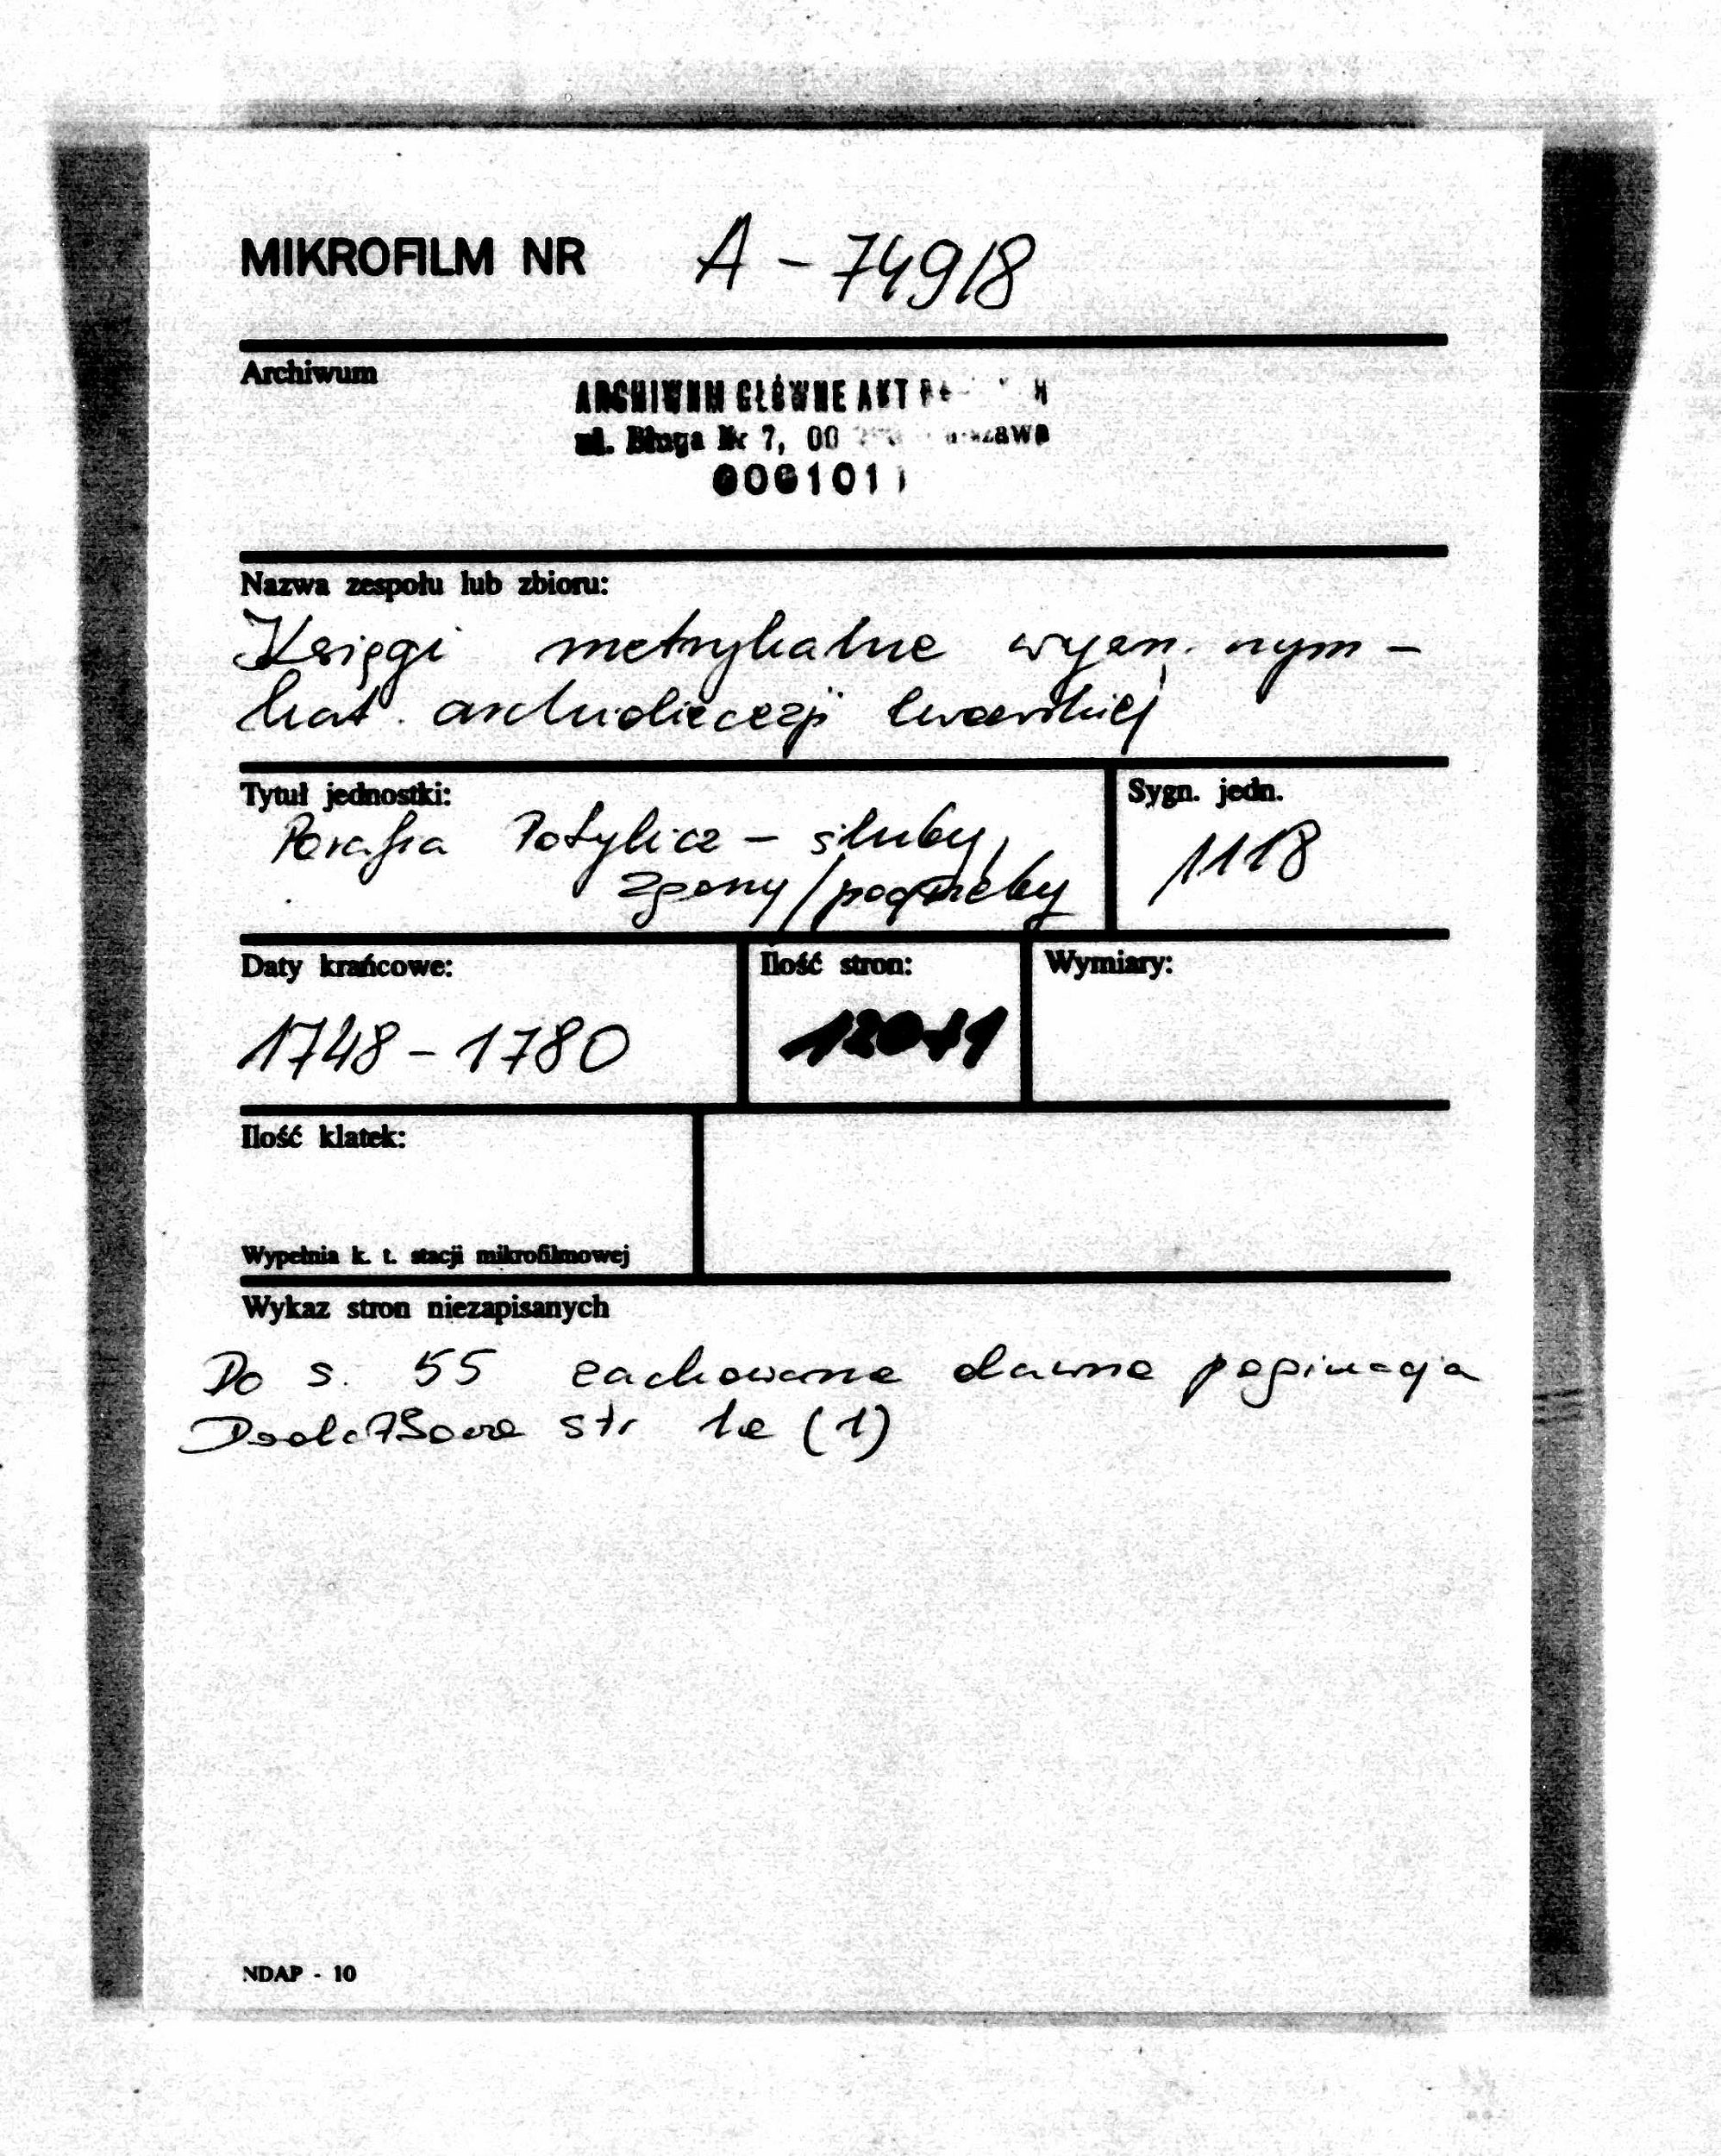 MIKROFILM NR A - 749/8
Archiwum
ARCHIWUM GŁÓWNE AKT
ul. Długa Nr 7, 00
Nazwa zespołu lub zbioru:
Księgi metrykalne wyzn. rzym -
kat. archidiecezji lwowskiej
Tytuł jednostki:
Sygn. jedn.
Parafia Potylicz - śluby,
zgony/pogrzeby
1118
Daty krańcowe:
Ilość stron:
Wymiary:
1748 - 1780
Ilość klatek:
Wypełnia k. t. stacji mikrofilmowej
Wykaz stron niezapisanych
Do s. 55 zachowana dawna paginacja
str 1a (1)
NDAP - 10